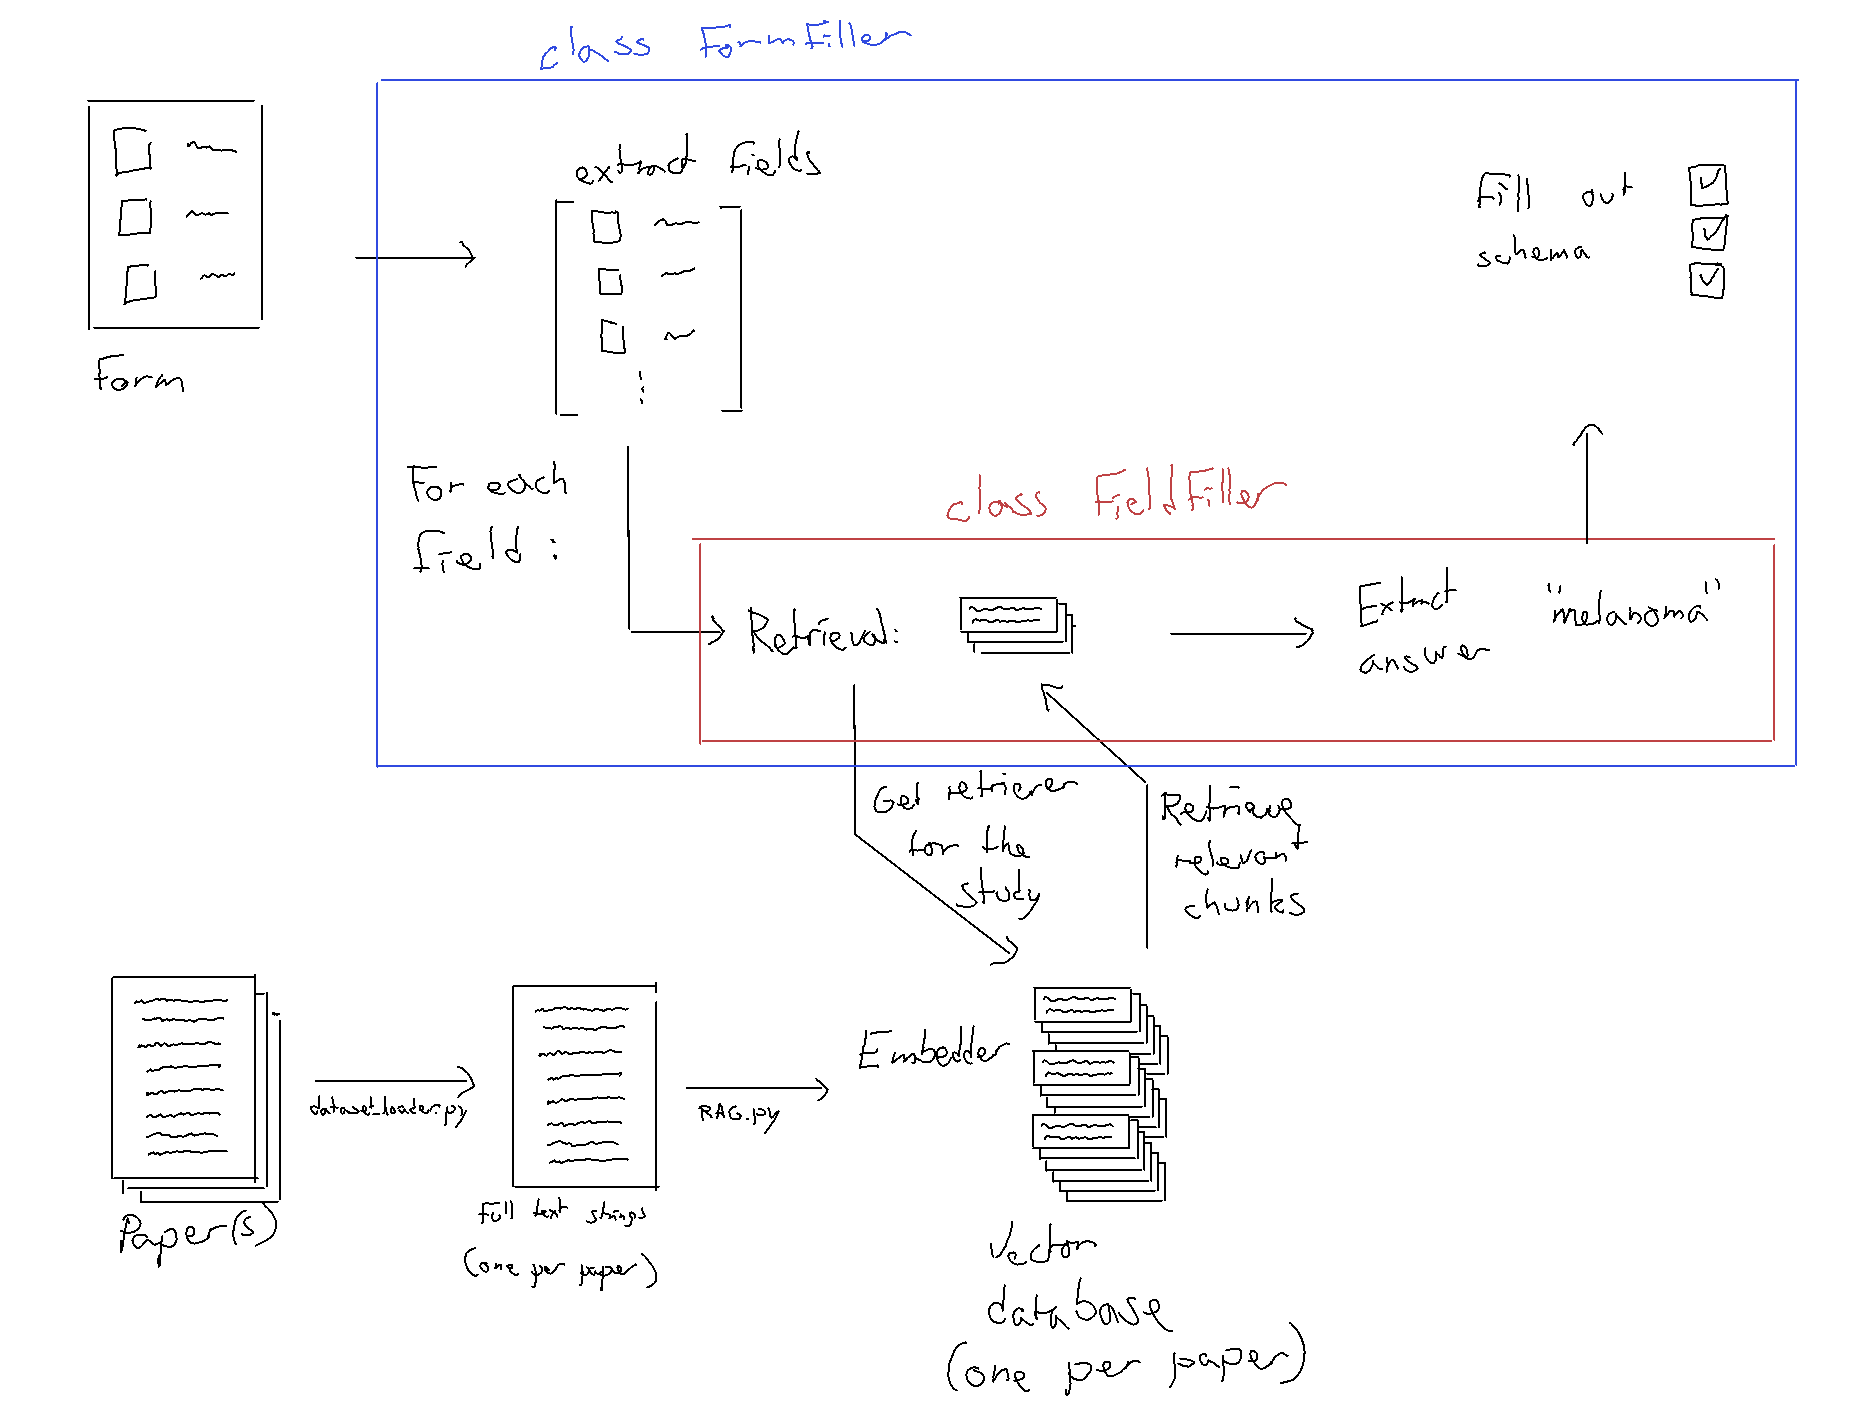 class FormFiller
extract fields
Fill out
schema
Form
For each
field:
class FieldFiller
Retrieval:
Extract
answer
"melanoma"
Get retriever
for the
study
Retrieve
relevant
chunks
Embedder
dataset_loader.py
RAG.py
Paper(s)
Full text strings
(one per paper)
Vector
database
(one per paper)